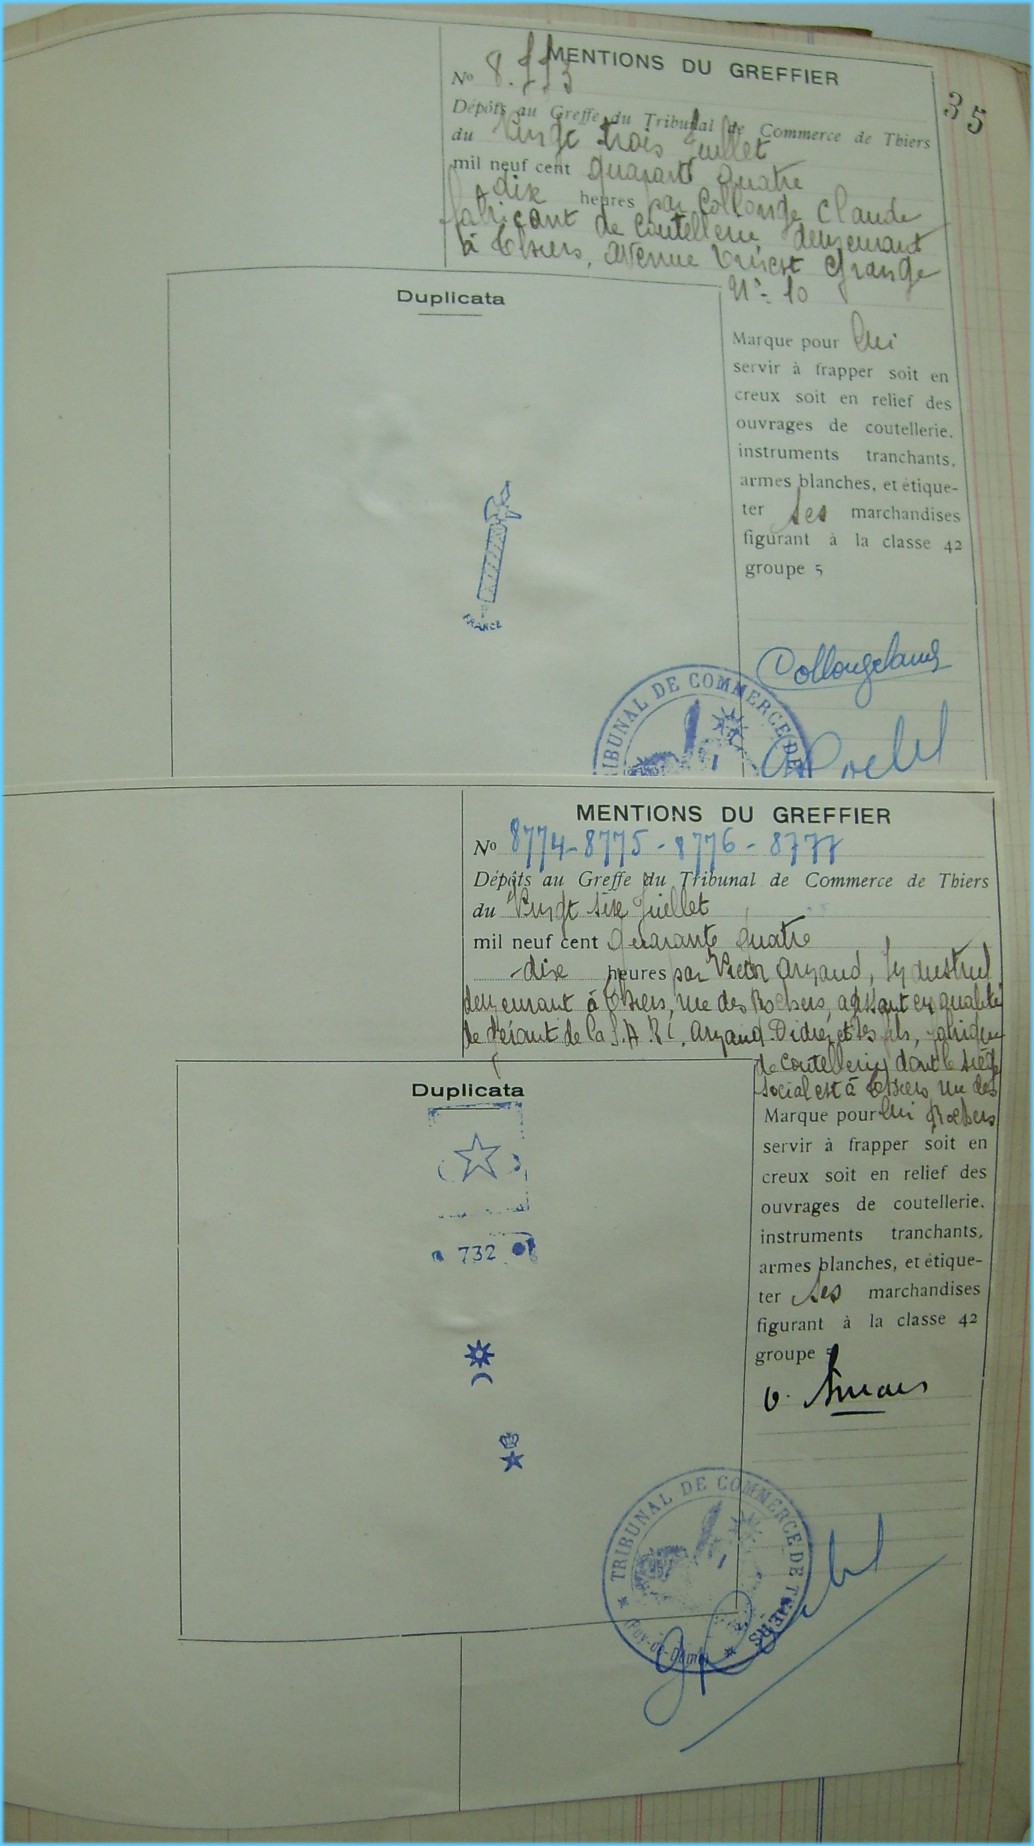 MENTIONS DU GREFFIER
35
No 8.773
Dépôts au Greffe du Tribunal de Commerce de Thiers
du Vingt trois Juillet
mil neuf cent quarante quatre
dix heures par Collonge Claude
fabricant de coutellerie, demeurant
à Thiers, avenue Ernest Grange
N° 10
Duplicata
Marque pour lui
servir à frapper soit en
creux soit en relief des
ouvrages de coutellerie.
instruments tranchants,
armes blanches, et étique-
ter ses marchandises
figurant à la classe 42
groupe 5
FRANCE
Collonge Claude
TRIBUNAL DE COMMERCE DE
MENTIONS DU GREFFIER
No 8774-8775-8776-8777
Dépôts au Greffe du Tribunal de Commerce de Thiers
du Vingt six Juillet
mil neuf cent quarante quatre
dix heures par Victor Arnaud, Industriel
demeurant à Thiers, rue des Rochers, agissant en qualité
de Gérant de la S.A.R.L. Arnaud-Didier et ses fils, fabrique
de coutellerie dont le siège
social est à Thiers rue des
Rochers
Duplicata
732
Marque pour lui
servir à frapper soit en
creux soit en relief des
ouvrages de coutellerie.
instruments tranchants,
armes blanches, et étique-
ter ses marchandises
figurant à la classe 42
groupe 5
TRIBUNAL DE COMMERCE DE THIERS
(Puy-de-Dôme)